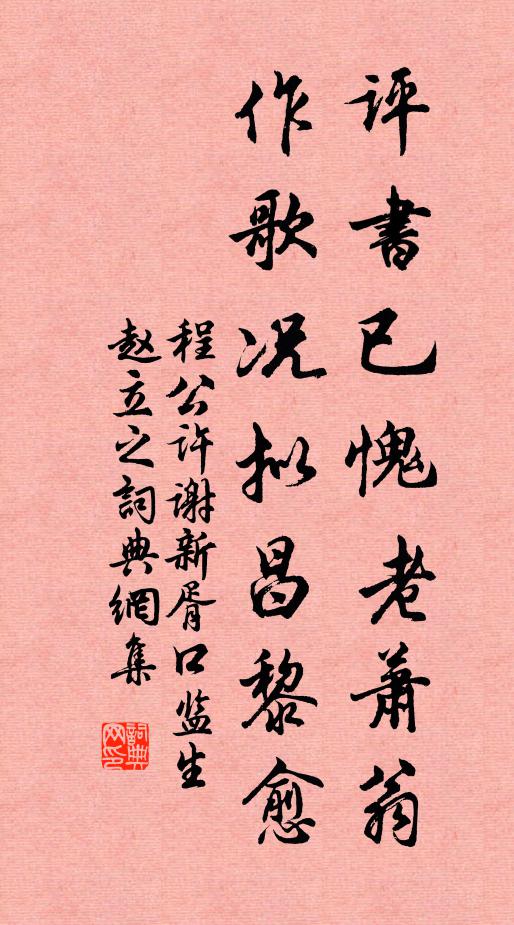 评書已愧老蕭翁
作歌况拟昌黎愈
程公许谢新胥口监生
赵立之詞典網集
詞典网印